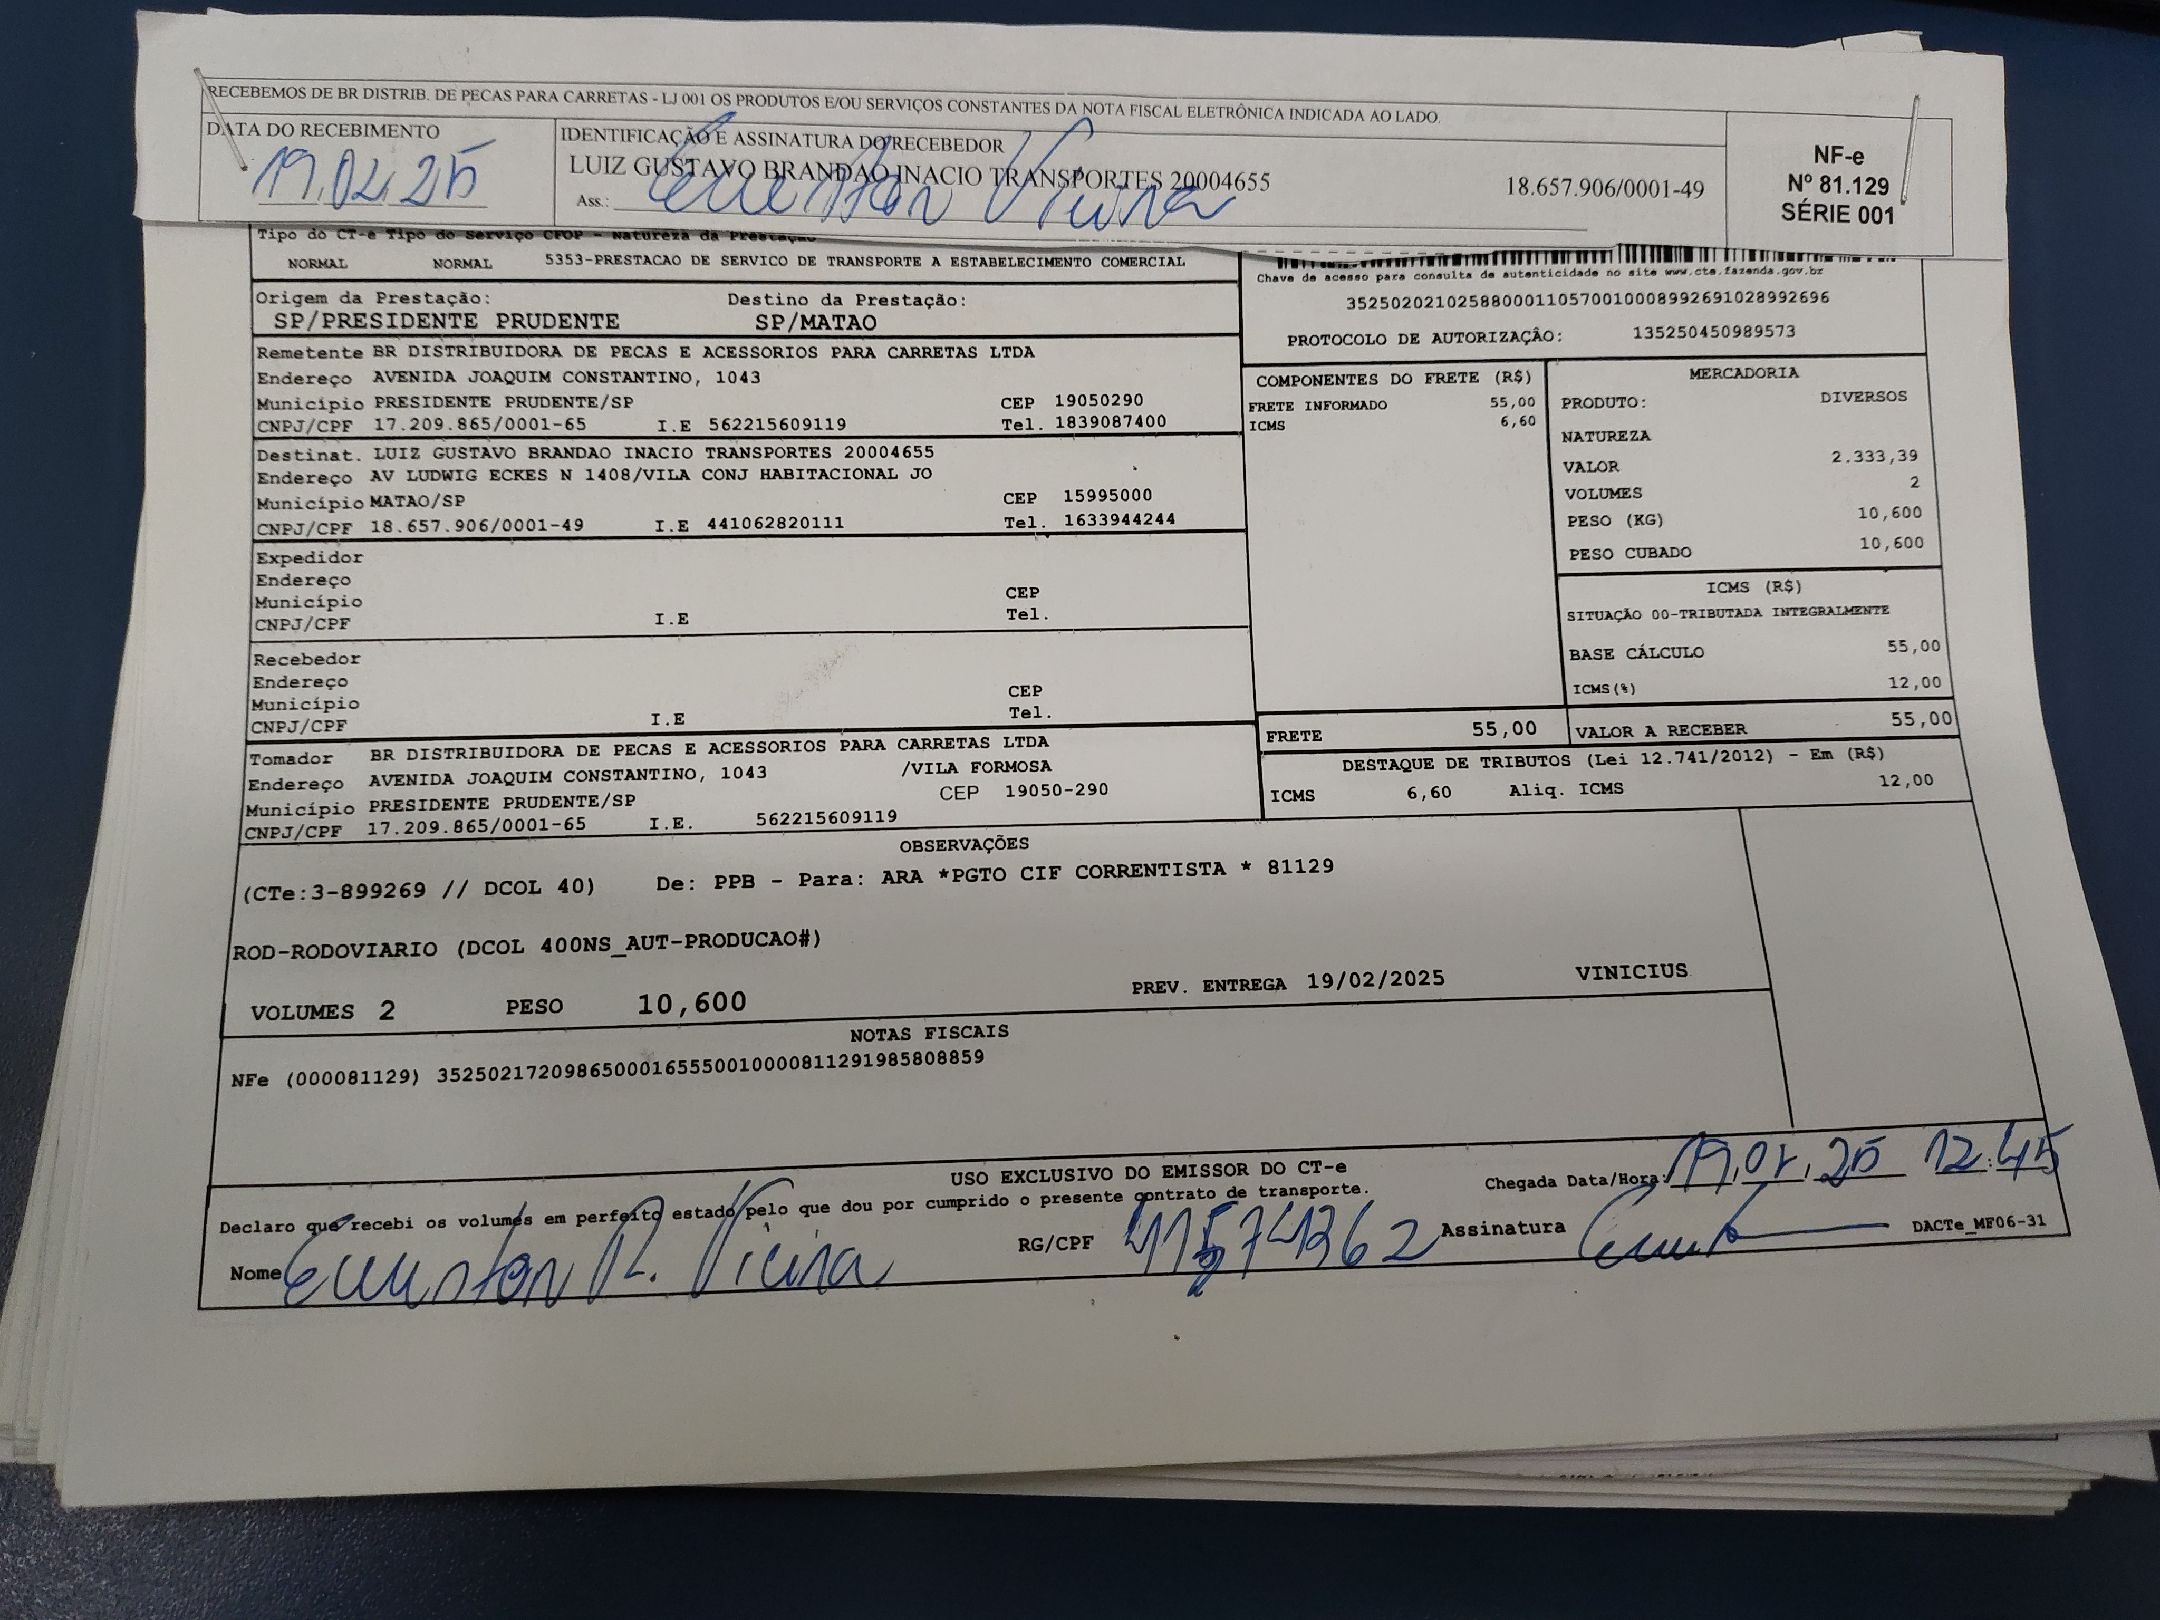 RECEBEMOS DE BR DISTRIB. DE PECAS PARA CARRETAS - LJ 001 OS PRODUTOS E/OU SERVIÇOS CONSTANTES DA NOTA FISCAL ELETRÔNICA INDICADA AO LADO.
DATA DO RECEBIMENTO
19.02.25
IDENTIFICAÇÃO E ASSINATURA DO RECEBEDOR
LUIZ GUSTAVO BRANDAO INACIO TRANSPORTES 20004655 18.657.906/0001-49
Ass.: Vieira
NF-e
Nº 81.129
SÉRIE 001
Tipo do CT-e Tipo do Serviço CFOP - Natureza da Prestação
NORMAL NORMAL 5353-PRESTACAO DE SERVICO DE TRANSPORTE A ESTABELECIMENTO COMERCIAL
Origem da Prestação: Destino da Prestação:
SP/PRESIDENTE PRUDENTE SP/MATAO
Chave de acesso para consulta de autenticidade no site www.cte.fazenda.gov.br
35250202102588000110570010008992691028992696
PROTOCOLO DE AUTORIZAÇÂO: 135250450989573
Remetente BR DISTRIBUIDORA DE PECAS E ACESSORIOS PARA CARRETAS LTDA
Endereço AVENIDA JOAQUIM CONSTANTINO, 1043
Município PRESIDENTE PRUDENTE/SP CEP 19050290
CNPJ/CPF 17.209.865/0001-65 I.E 562215609119 Tel. 1839087400
Destinat. LUIZ GUSTAVO BRANDAO INACIO TRANSPORTES 20004655
Endereço AV LUDWIG ECKES N 1408/VILA CONJ HABITACIONAL JO
Município MATAO/SP CEP 15995000
CNPJ/CPF 18.657.906/0001-49 I.E 441062820111 Tel. 1633944244
Expedidor
Endereço
Município CEP
CNPJ/CPF I.E Tel.
Recebedor
Endereço
Município CEP
CNPJ/CPF I.E Tel.
Tomador BR DISTRIBUIDORA DE PECAS E ACESSORIOS PARA CARRETAS LTDA
Endereço AVENIDA JOAQUIM CONSTANTINO, 1043 /VILA FORMOSA
Município PRESIDENTE PRUDENTE/SP CEP 19050-290
CNPJ/CPF 17.209.865/0001-65 I.E. 562215609119
COMPONENTES DO FRETE (R$)
FRETE INFORMADO 55,00
ICMS 6,60
MERCADORIA
PRODUTO: DIVERSOS
NATUREZA
VALOR 2.333,39
VOLUMES 2
PESO (KG) 10,600
PESO CUBADO 10,600
ICMS (R$)
SITUAÇÃO 00-TRIBUTADA INTEGRALMENTE
BASE CÁLCULO 55,00
ICMS(%) 12,00
FRETE 55,00 VALOR A RECEBER 55,00
DESTAQUE DE TRIBUTOS (Lei 12.741/2012) - Em (R$)
ICMS 6,60 Aliq. ICMS 12,00
OBSERVAÇÕES
(CTe:3-899269 // DCOL 40) De: PPB - Para: ARA *PGTO CIF CORRENTISTA * 81129
ROD-RODOVIARIO (DCOL 400NS_AUT-PRODUCAO#)
VOLUMES 2 PESO 10,600 PREV. ENTREGA 19/02/2025 VINICIUS
NOTAS FISCAIS
NFe (000081129) 35250217209865000165550010000811291985808859
USO EXCLUSIVO DO EMISSOR DO CT-e
Declaro que recebi os volumes em perfeito estado pelo que dou por cumprido o presente contrato de transporte.
Chegada Data/Hora: 19.02.25 12:45
Nome R. Vieira RG/CPF Assinatura DACTe_MF06-31